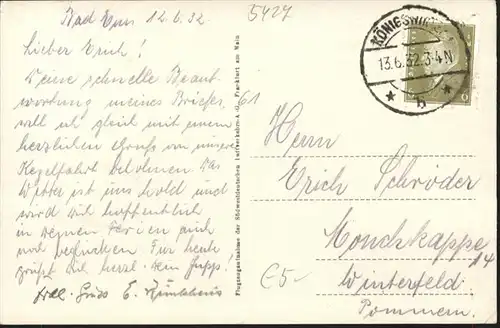 Bad Ems 12.6.32
5427
Lieber Erich!
Deine schnelle Beant-
wortung meines Briefes
will ich gleich mit einem
herzlichen Gruß von unsere
Kegelfahrt belohnen. Das
Wetter ist uns hold und
wird Dich hoffentlich
in Deinen Ferien auch
noch beglücken Für heute
grüßt Dich herzl. Dein Jupp!
Frdl. Gruss E.
61
Flugzeugaufnahme der Südwestdeutschen Luftverkehrs-A.G. Frankfurt am Main
KÖNIGSWINTER
13.6.32.3-4N
* b *
6
Herrn
Erich Schröder
Mönchskappe
14
Winterfeld.
Pommern.
€5-